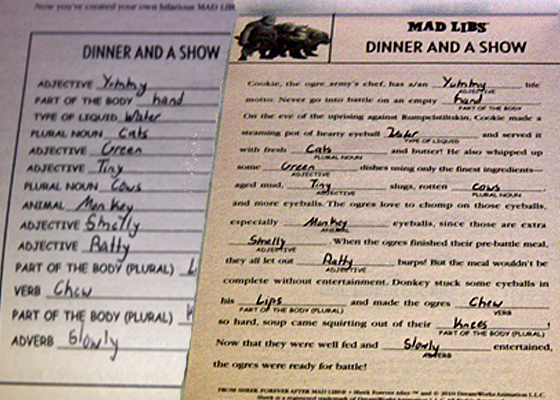 Now you've created your own hilarious MAD LIB
DINNER AND A SHOW
ADJECTIVE Yummy
PART OF THE BODY hand
TYPE OF LIQUID Water
PLURAL NOUN Cats
ADJECTIVE Green
ADJECTIVE Tiny
PLURAL NOUN Cows
ANIMAL Monkey
ADJECTIVE Smelly
ADJECTIVE Ratty
PART OF THE BODY (PLURAL) L
VERB Chew
PART OF THE BODY (PLURAL) K
ADVERB Slowly
MAD LIBS
DINNER AND A SHOW
Cookie, the ogre army's chef, has a/an Yummy life
ADJECTIVE
motto: Never go into battle on an empty hand.
PART OF THE BODY
On the eve of the uprising against Rumpelstiltskin, Cookie made a
steaming pot of hearty eyeball Water and served it
TYPE OF LIQUID
with fresh Cats and butter! He also whipped up
PLURAL NOUN
some Green dishes using only the finest ingredients—
ADJECTIVE
aged mud, Tiny slugs, rotten Cows,
ADJECTIVE PLURAL NOUN
and more eyeballs. The ogres love to chomp on those eyeballs,
especially Monkey eyeballs, since those are extra
ANIMAL
Smelly. When the ogres finished their pre-battle meal,
ADJECTIVE
they all let out Ratty burps! But the meal wouldn't be
ADJECTIVE
complete without entertainment. Donkey stuck some eyeballs in
his Lips and made the ogres Chew
PART OF THE BODY (PLURAL) VERB
so hard, soup came squirting out of their Knees.
PART OF THE BODY (PLURAL)
Now that they were well fed and Slowly entertained,
ADVERB
the ogres were ready for battle!
FROM SHREK FOREVER AFTER MAD LIBS® • Shrek Forever After ™ and © 2010 DreamWorks Animation L.L.C.
Shrek is a registered trademark of DreamWorks Animation L.L.C.